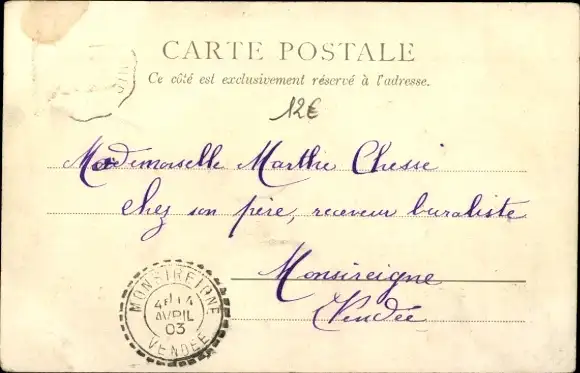 CARTE POSTALE
Ce côté est exclusivement réservé à l'adresse.
12€
Mademoiselle Marthe Chessé
chez son père, receveur buraliste
Monsireigne
Vendée
MONSIREIGNE
4E 14
AVRIL
03
VENDÉE